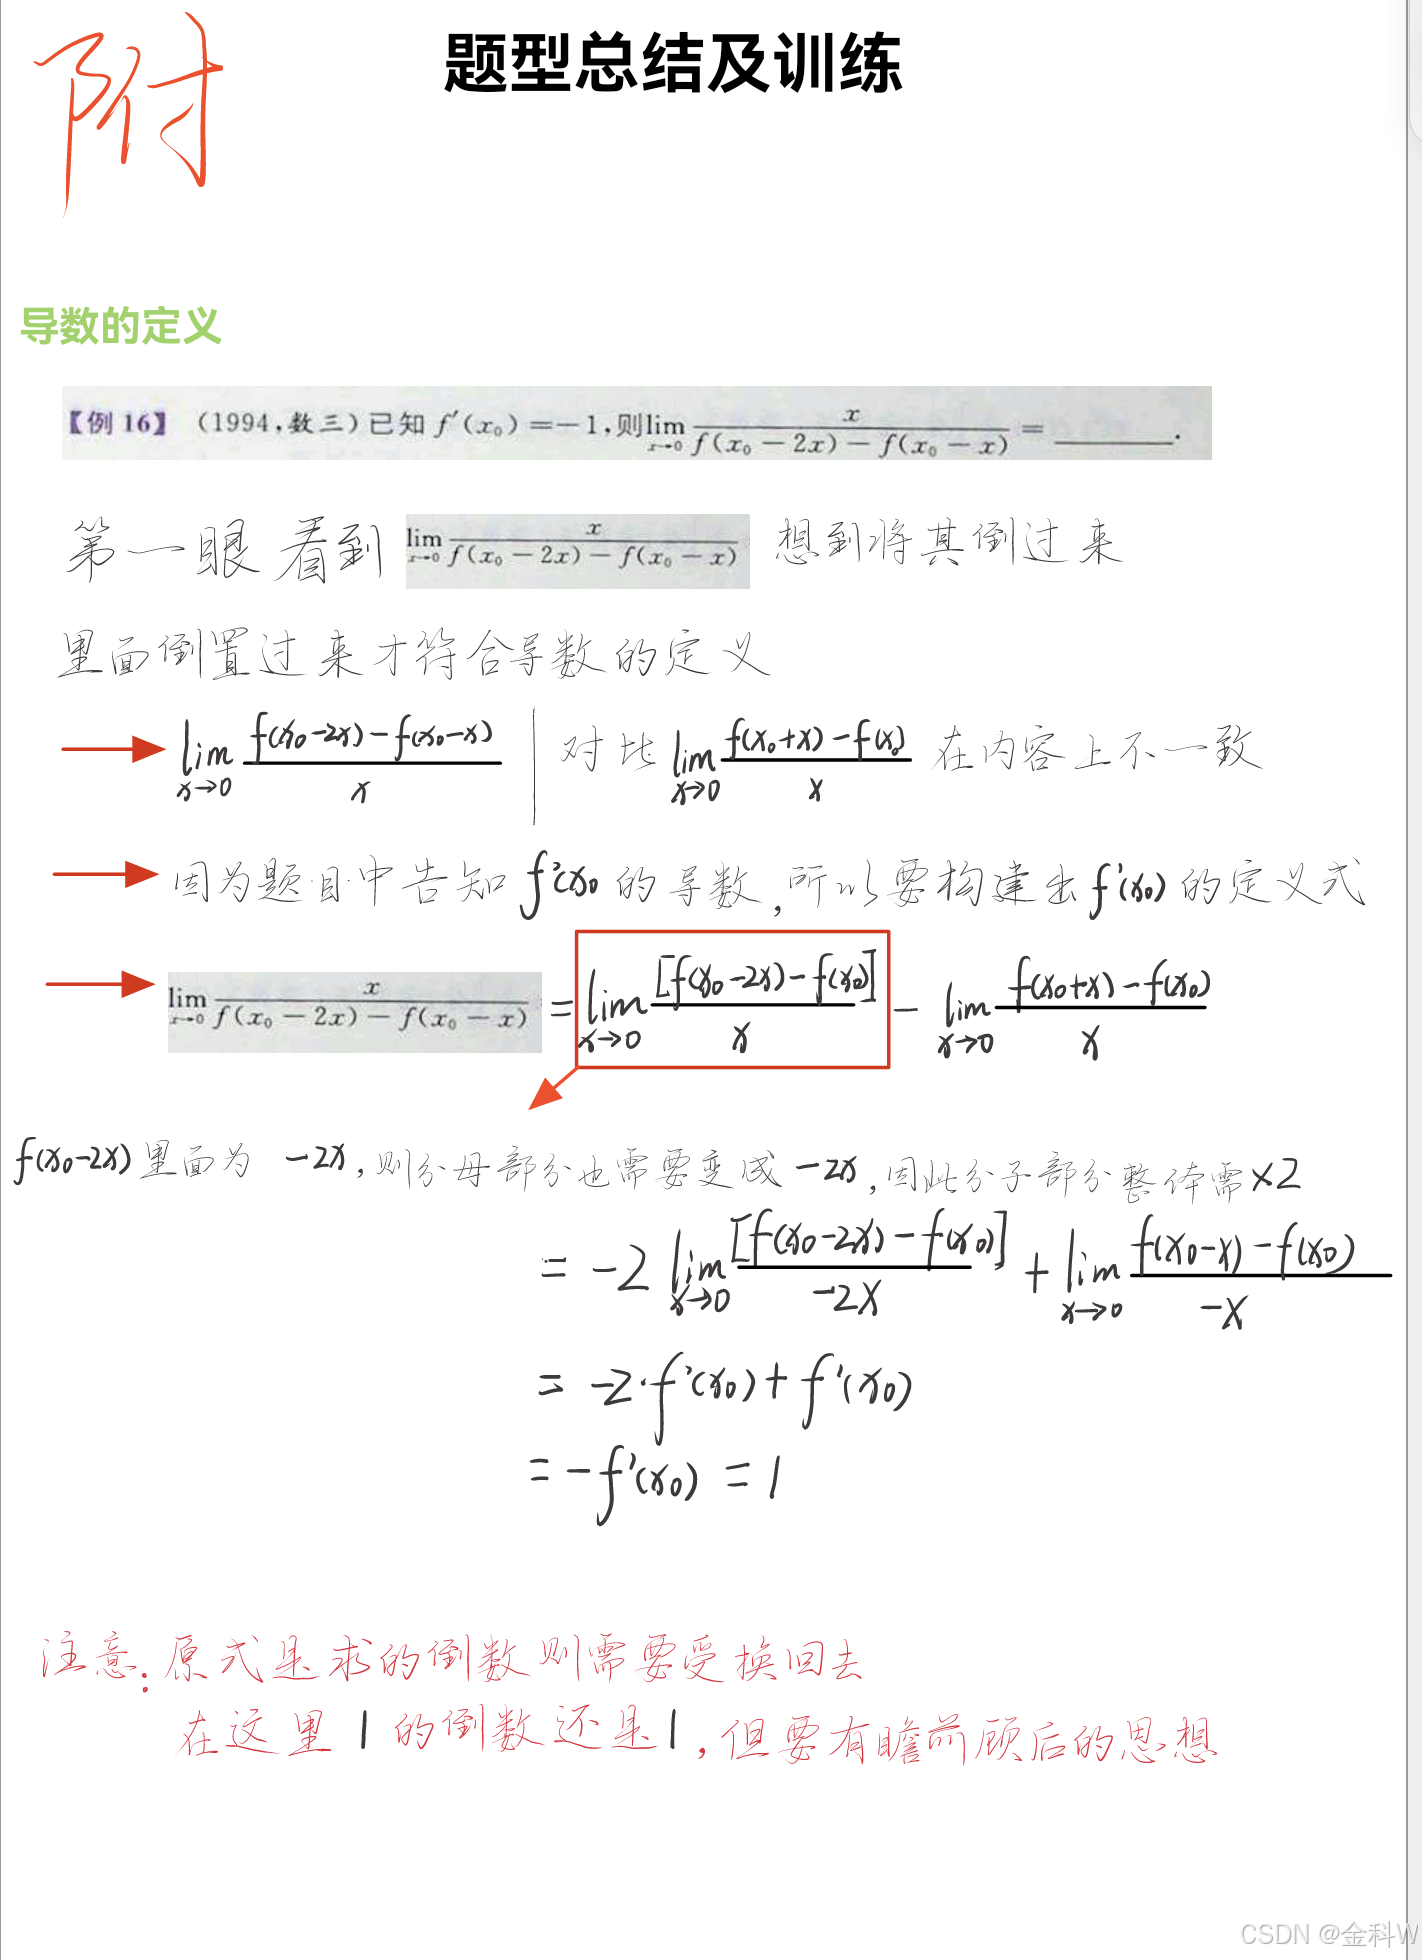 附
题型总结及训练
导数的定义
【例 16】 (1994,数三)已知 f′(x₀)=-1,则lim x→0 x / f(x₀-2x)-f(x₀-x) = ______.
第一眼看到 lim x→0 x / f(x₀-2x)-f(x₀-x) 想到将其倒过来
里面倒置过来才符合导数的定义
lim x→0 f(x₀-2x)-f(x₀-x) / x | 对比 lim x→0 f(x₀+x)-f(x₀) / x 在内容上不一致
因为题目中告知 f'(x₀ 的导数,所以要构建出 f'(x₀) 的定义式
lim x→0 x / f(x₀-2x)-f(x₀-x) = lim x→0 [f(x₀-2x)-f(x₀)] / x - lim x→0 f(x₀+x)-f(x₀) / x
f(x₀-2x) 里面为 -2x,则分母部分也需要变成 -2x,因此分子部分整体需×2
= -2 lim x→0 [f(x₀-2x)-f(x₀)] / -2x + lim x→0 f(x₀-x)-f(x₀) / -x
= -2·f'(x₀)+f'(x₀)
= -f'(x₀) = 1
注意:原式是求的倒数则需要受换回去
在这里 1 的倒数还是1,但要有瞻前顾后的思想
CSDN @金科W